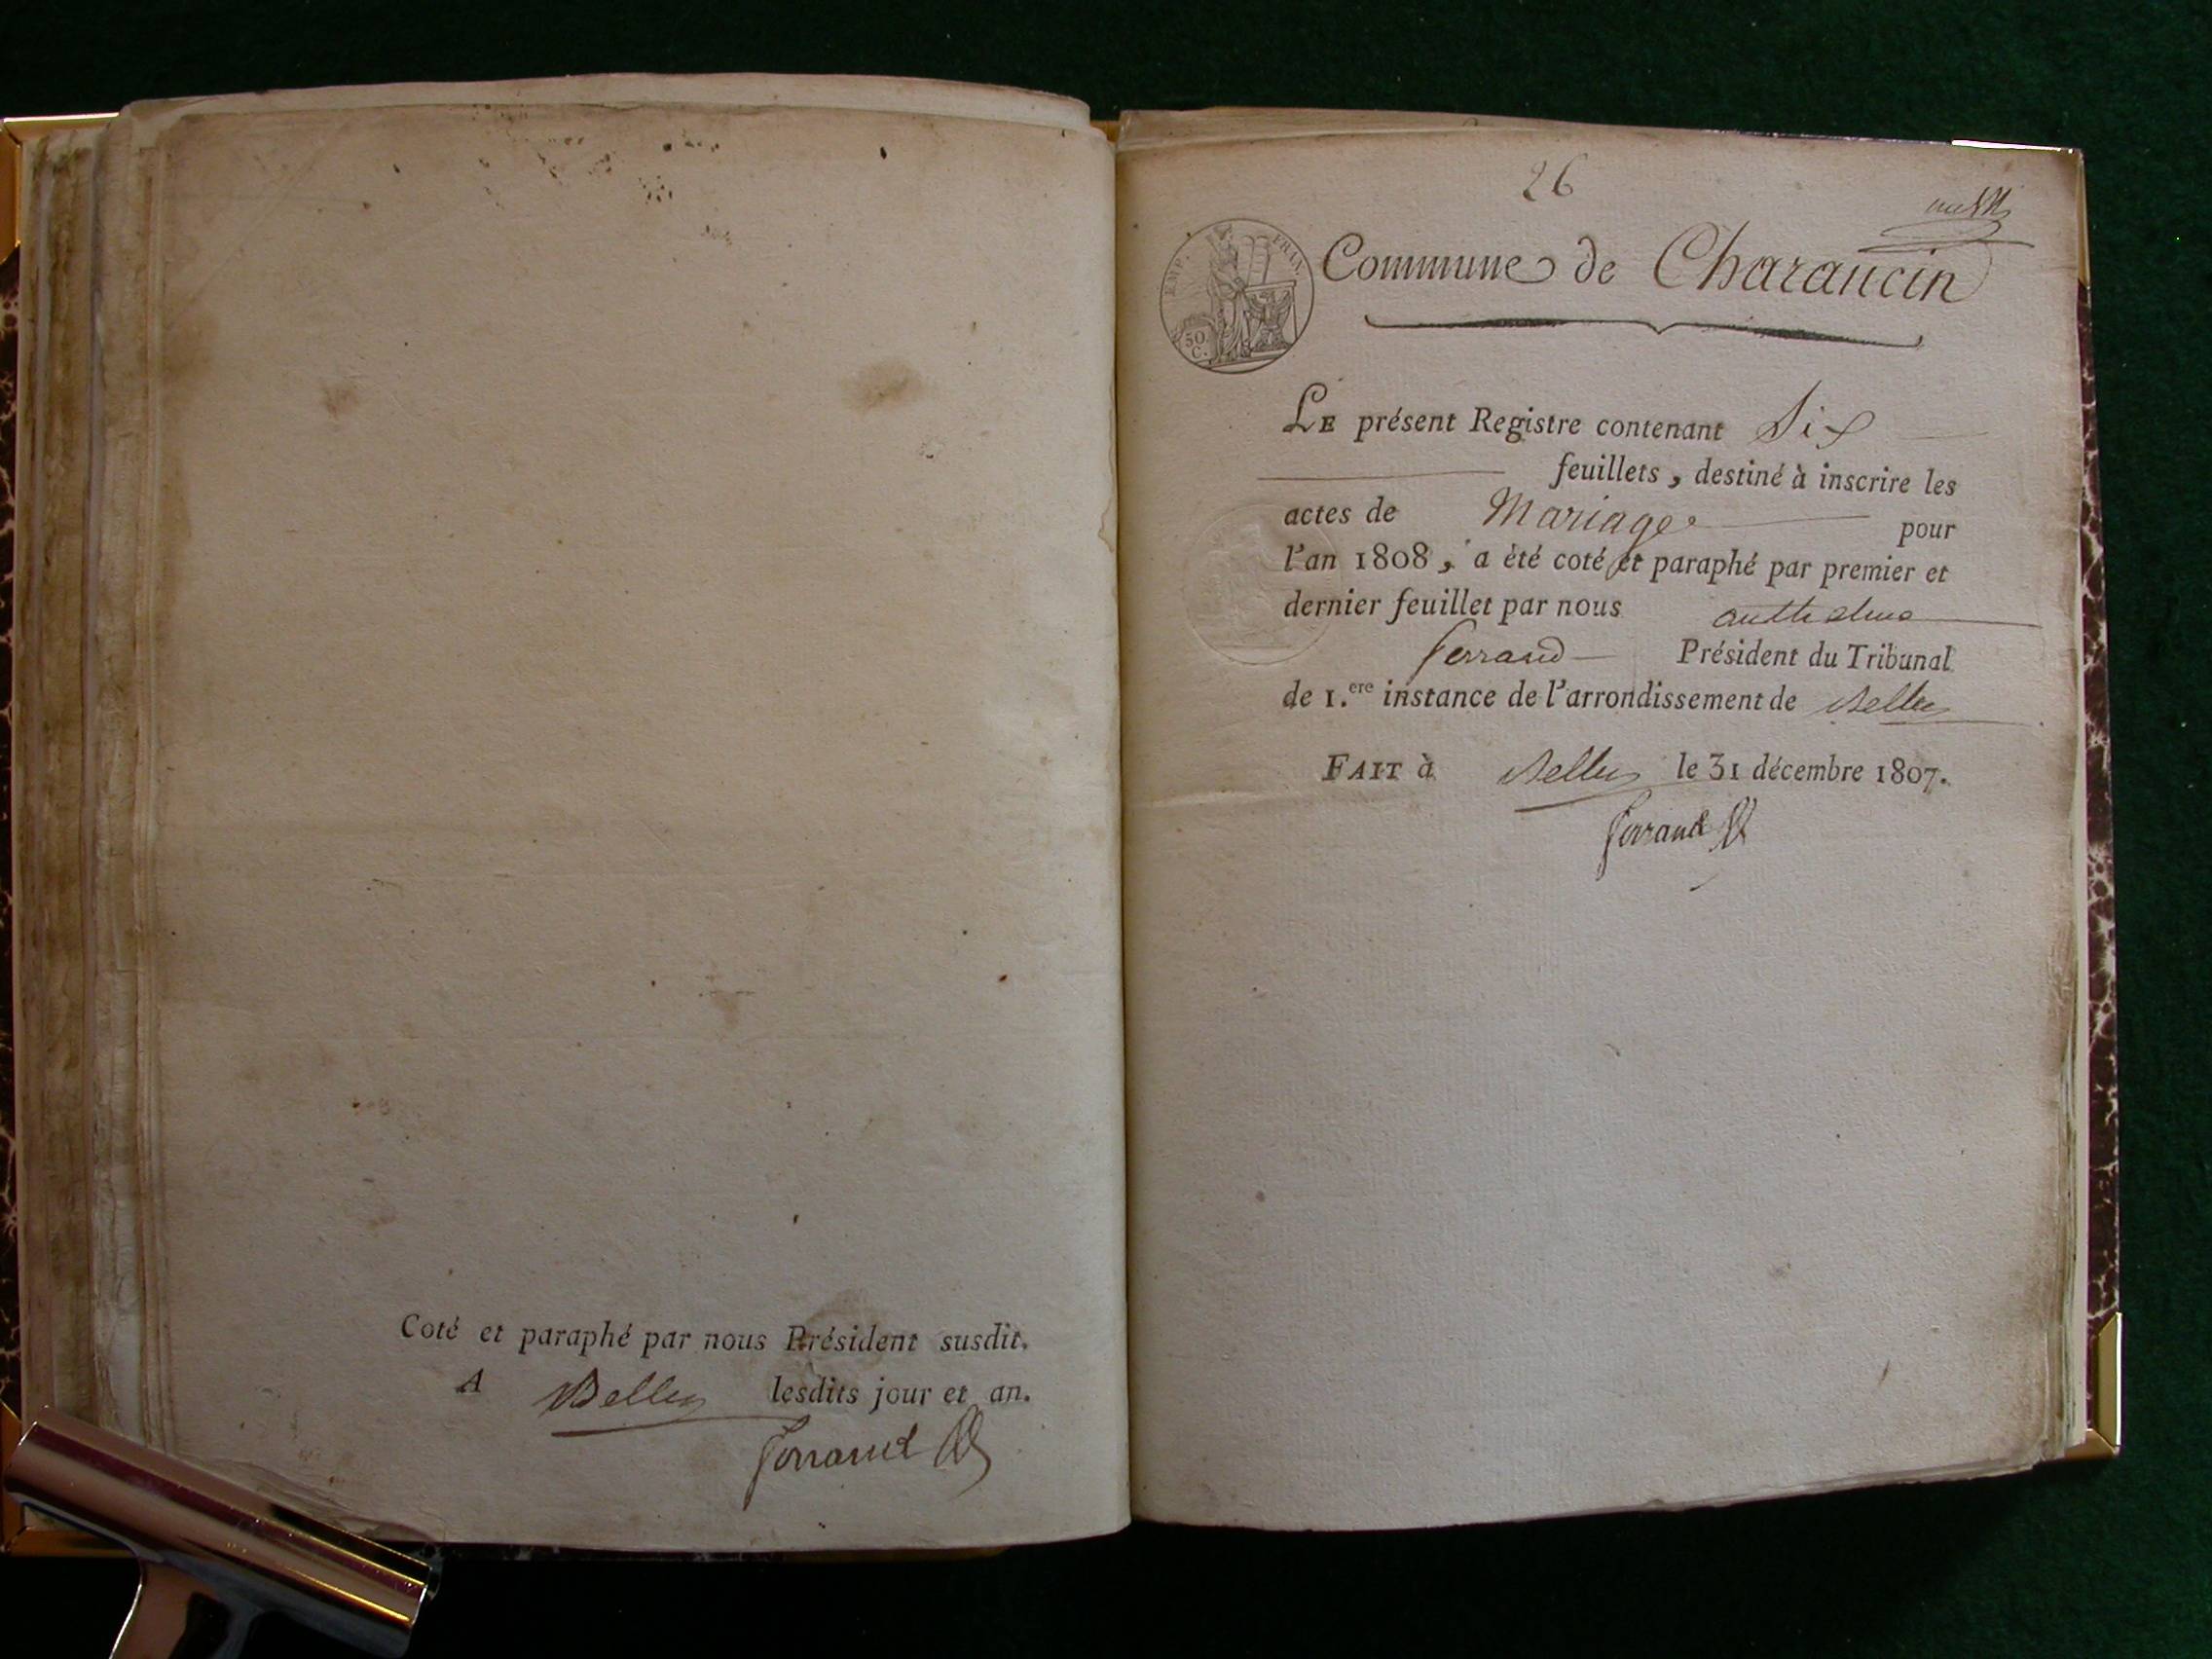 Coté et paraphé par nous Président susdit.
A Belley lesdits jour et an.
Ferrand
26
EMP. FRAN.
50
C.
Commune de Charancin
LE présent Registre contenant Six
feuillets, destiné à inscrire les
actes de Mariage pour
l'an 1808, a été coté et paraphé par premier et
dernier feuillet par nous anthelme
Ferrand Président du Tribunal
de 1.ere instance de l'arrondissement de Belley
FAIT à Belley le 31 décembre 1807.
Ferrand